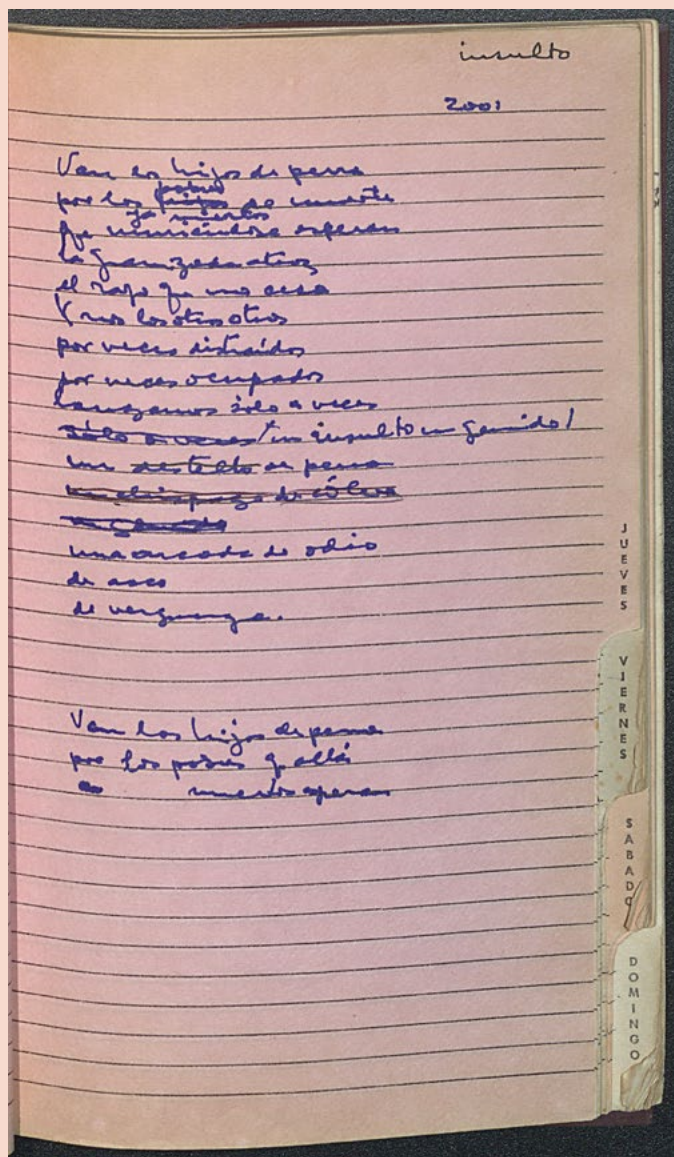 insulto
2001
Van los hijos de perra
pobres
por los hijos de muerte
ya muertos
que muriéndose esperan
la granizada atroz
el rayo que no cesa
Y nos los otros otros
por veces distraídos
por veces ocupados
lanzamos sólo a veces
sólo a veces / un insulto un gemido /
un destello de pena
un chispazo de cólera
un gemido
una arcada de odio
de asco
de vergüenza.
Van los hijos de perra
por los pobres q allá
muertos esperan
JUEVES
VIERNES
SABADO
DOMINGO